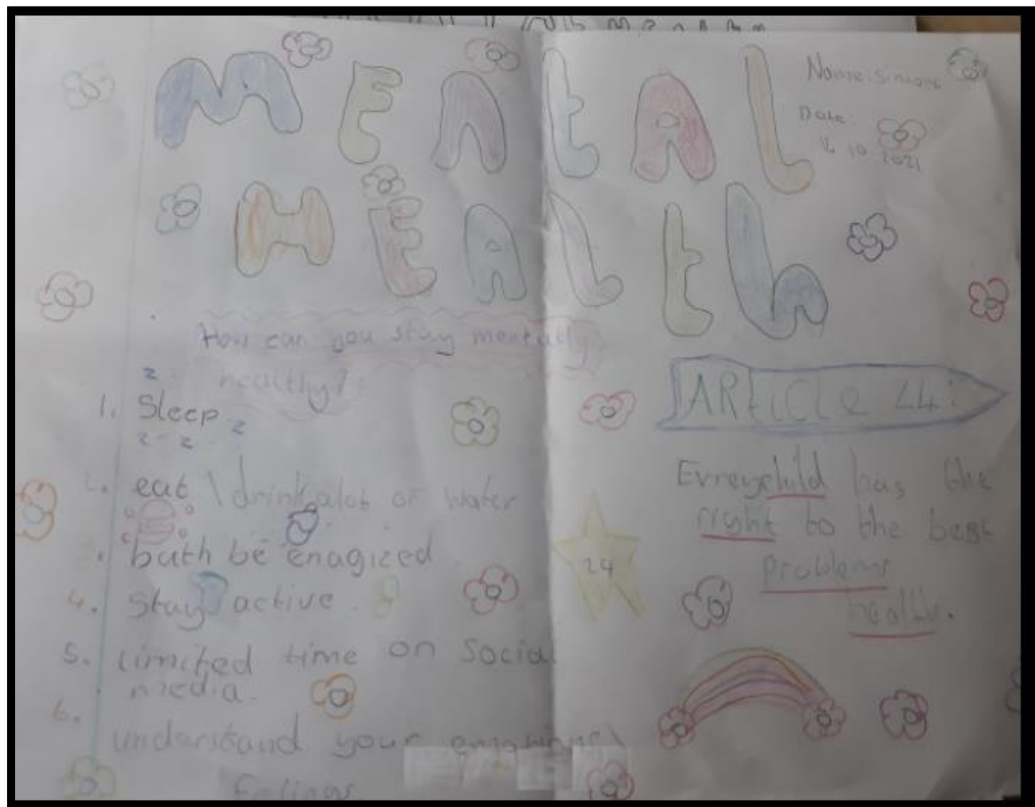 MENtAL
HEALth
Name: Simone
Date
10 2021
How can you stay mentally
healthy?
1. Sleep.
z z z z z
2. eat \ drink alot of water
3. bath be enagized
4. Stay active.
5. Limited time on Social
media.
6.
understand your emotional
feelings
24
ARticle 24:
Evreychild has the
right to the best
problems
health.